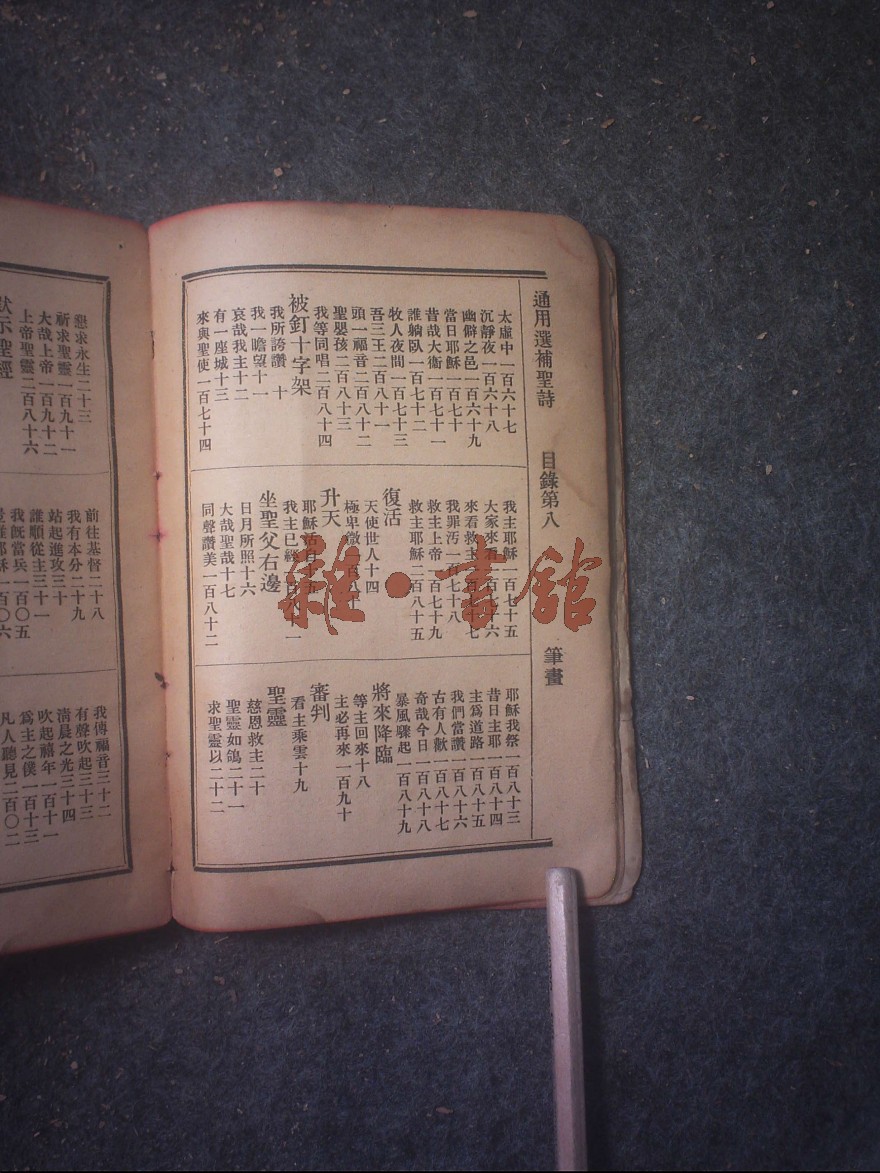 通用選補聖詩 目錄第八 筆畫
太虛中一百六十七
沉靜夜一百六十八
幽僻之邑一百六十九
當日耶穌一百七十
昔哉大衞一百七十一
誰躺臥一百七十二
牧人夜間一百七十三
吾三王二百八十一
頭一福音二百八十二
聖嬰孩二百八十三
我等同唱二百八十四
被釘十字架
我所誇讚 十
我一瞻望十一
哀哉我主十二
有一座城十三
來與聖使一百七十四
我主耶穌一百七十五
大家來看一百七十六
來看救主一百七十七
我罪汚一百七十八
救主上帝一百七十九
救主耶穌二百八十五
復活
天使世人十四
極卑微一百八十
升天
耶穌活十五
我主已經一百八十一
坐聖父右邊
日月所照十六
大哉聖哉十七
同聲讚美一百八十二
耶穌我祭一百八十三
昔日主耶一百八十四
主爲道路一百八十五
我們當讚一百八十六
古有人歡一百八十七
奇哉今日一百八十八
暴風驟起一百八十九
將來降臨
等主回來十八
主必再來一百九十
審判
看主乘雲十九
聖靈
慈恩救主二十
聖靈如鴿二十一
求聖靈以二十二
懇求永生二十三
祈求聖靈一百九十一
大哉上帝一百九十二
上帝聖靈二百八十六
默示聖經
前往基督二十八
我有本分二十九
站起進攻三十
誰順從主三十一
我旣當兵一百〇五
一百〇六
我傳福音三十二
有聲吹起三十三
清晨之光三十四
吹起禧年一百十一
爲主之僕一百十三
凡人聽見二百〇二
雜·書館